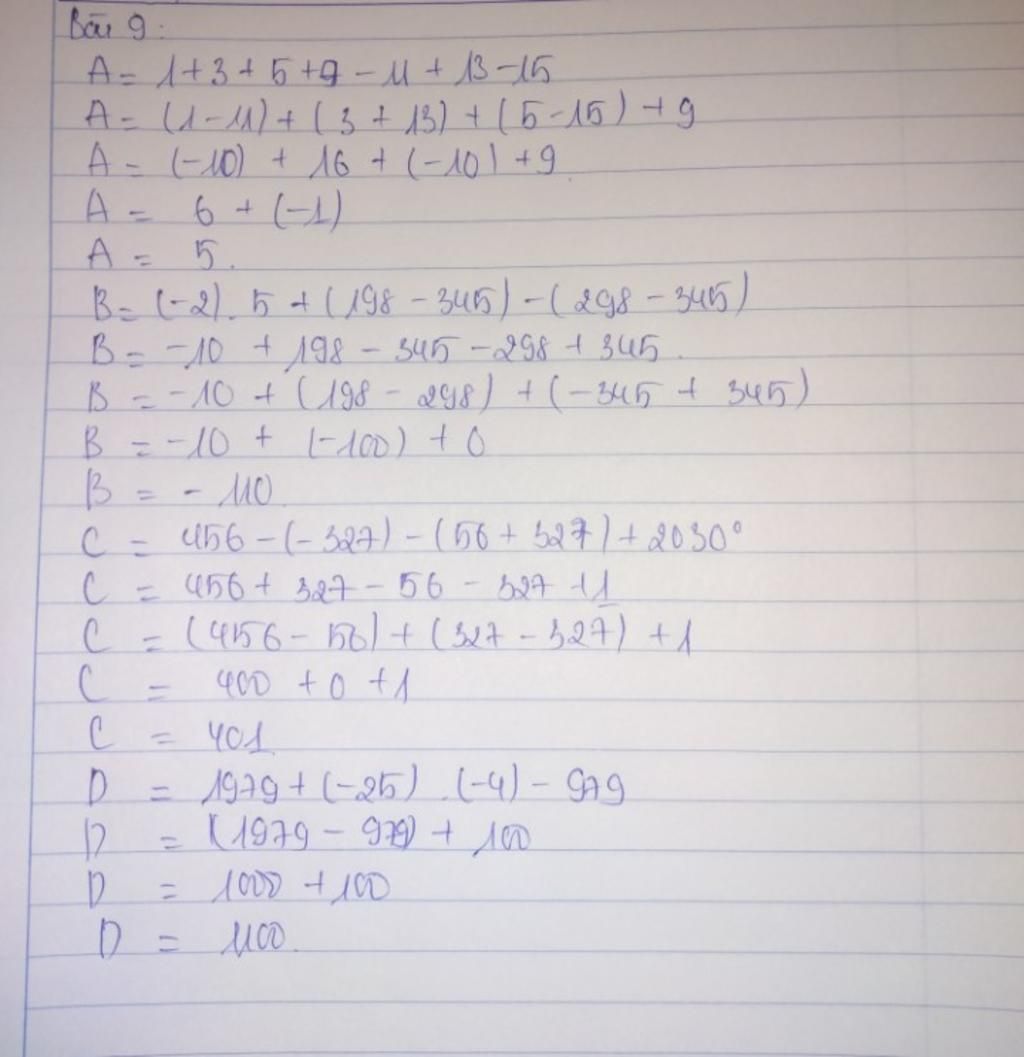 Bài 9:
A = 1+3+5+9-11+13-15
A = (1-11)+(3+13)+(5-15)+9
A = (-10) + 16 + (-10) +9
A = 6 + (-1)
A = 5.
B = (-2). 5 + (198 - 345) - (298 - 345)
B = -10 + 198 - 345 - 298 + 345.
B = -10 + (198 - 298) + (-345 + 345)
B = -10 + (-100) + 0
B = - 110
C = 456 - (-327) - (56 + 327) + 2030°
C = 456 + 327 - 56 - 327 +1
C = (456 - 56) + (327 - 327) + 1
C = 400 + 0 + 1
C = 401
D = 1979 + (-25) . (-4) - 979
D = (1979 - 979) + 100
D = 1000 + 100
D = 1100.